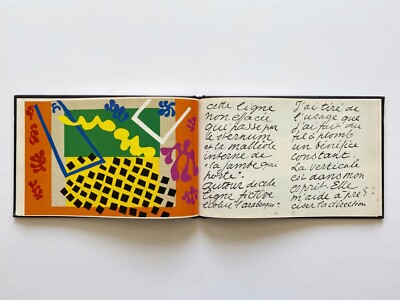 cette ligne
non effacée
qui passe par
le sternum
et la malléole
interne de
la jambe qui
"porte".
autour de cette
ligne fictive
évolue l'arabesque.
J'ai tiré de
l'usage que
j'ai fait du
fil à plomb
un bénéfice
constant.
La verticale
est dans mon
esprit. Elle
m'aide à pré
ciser la direction